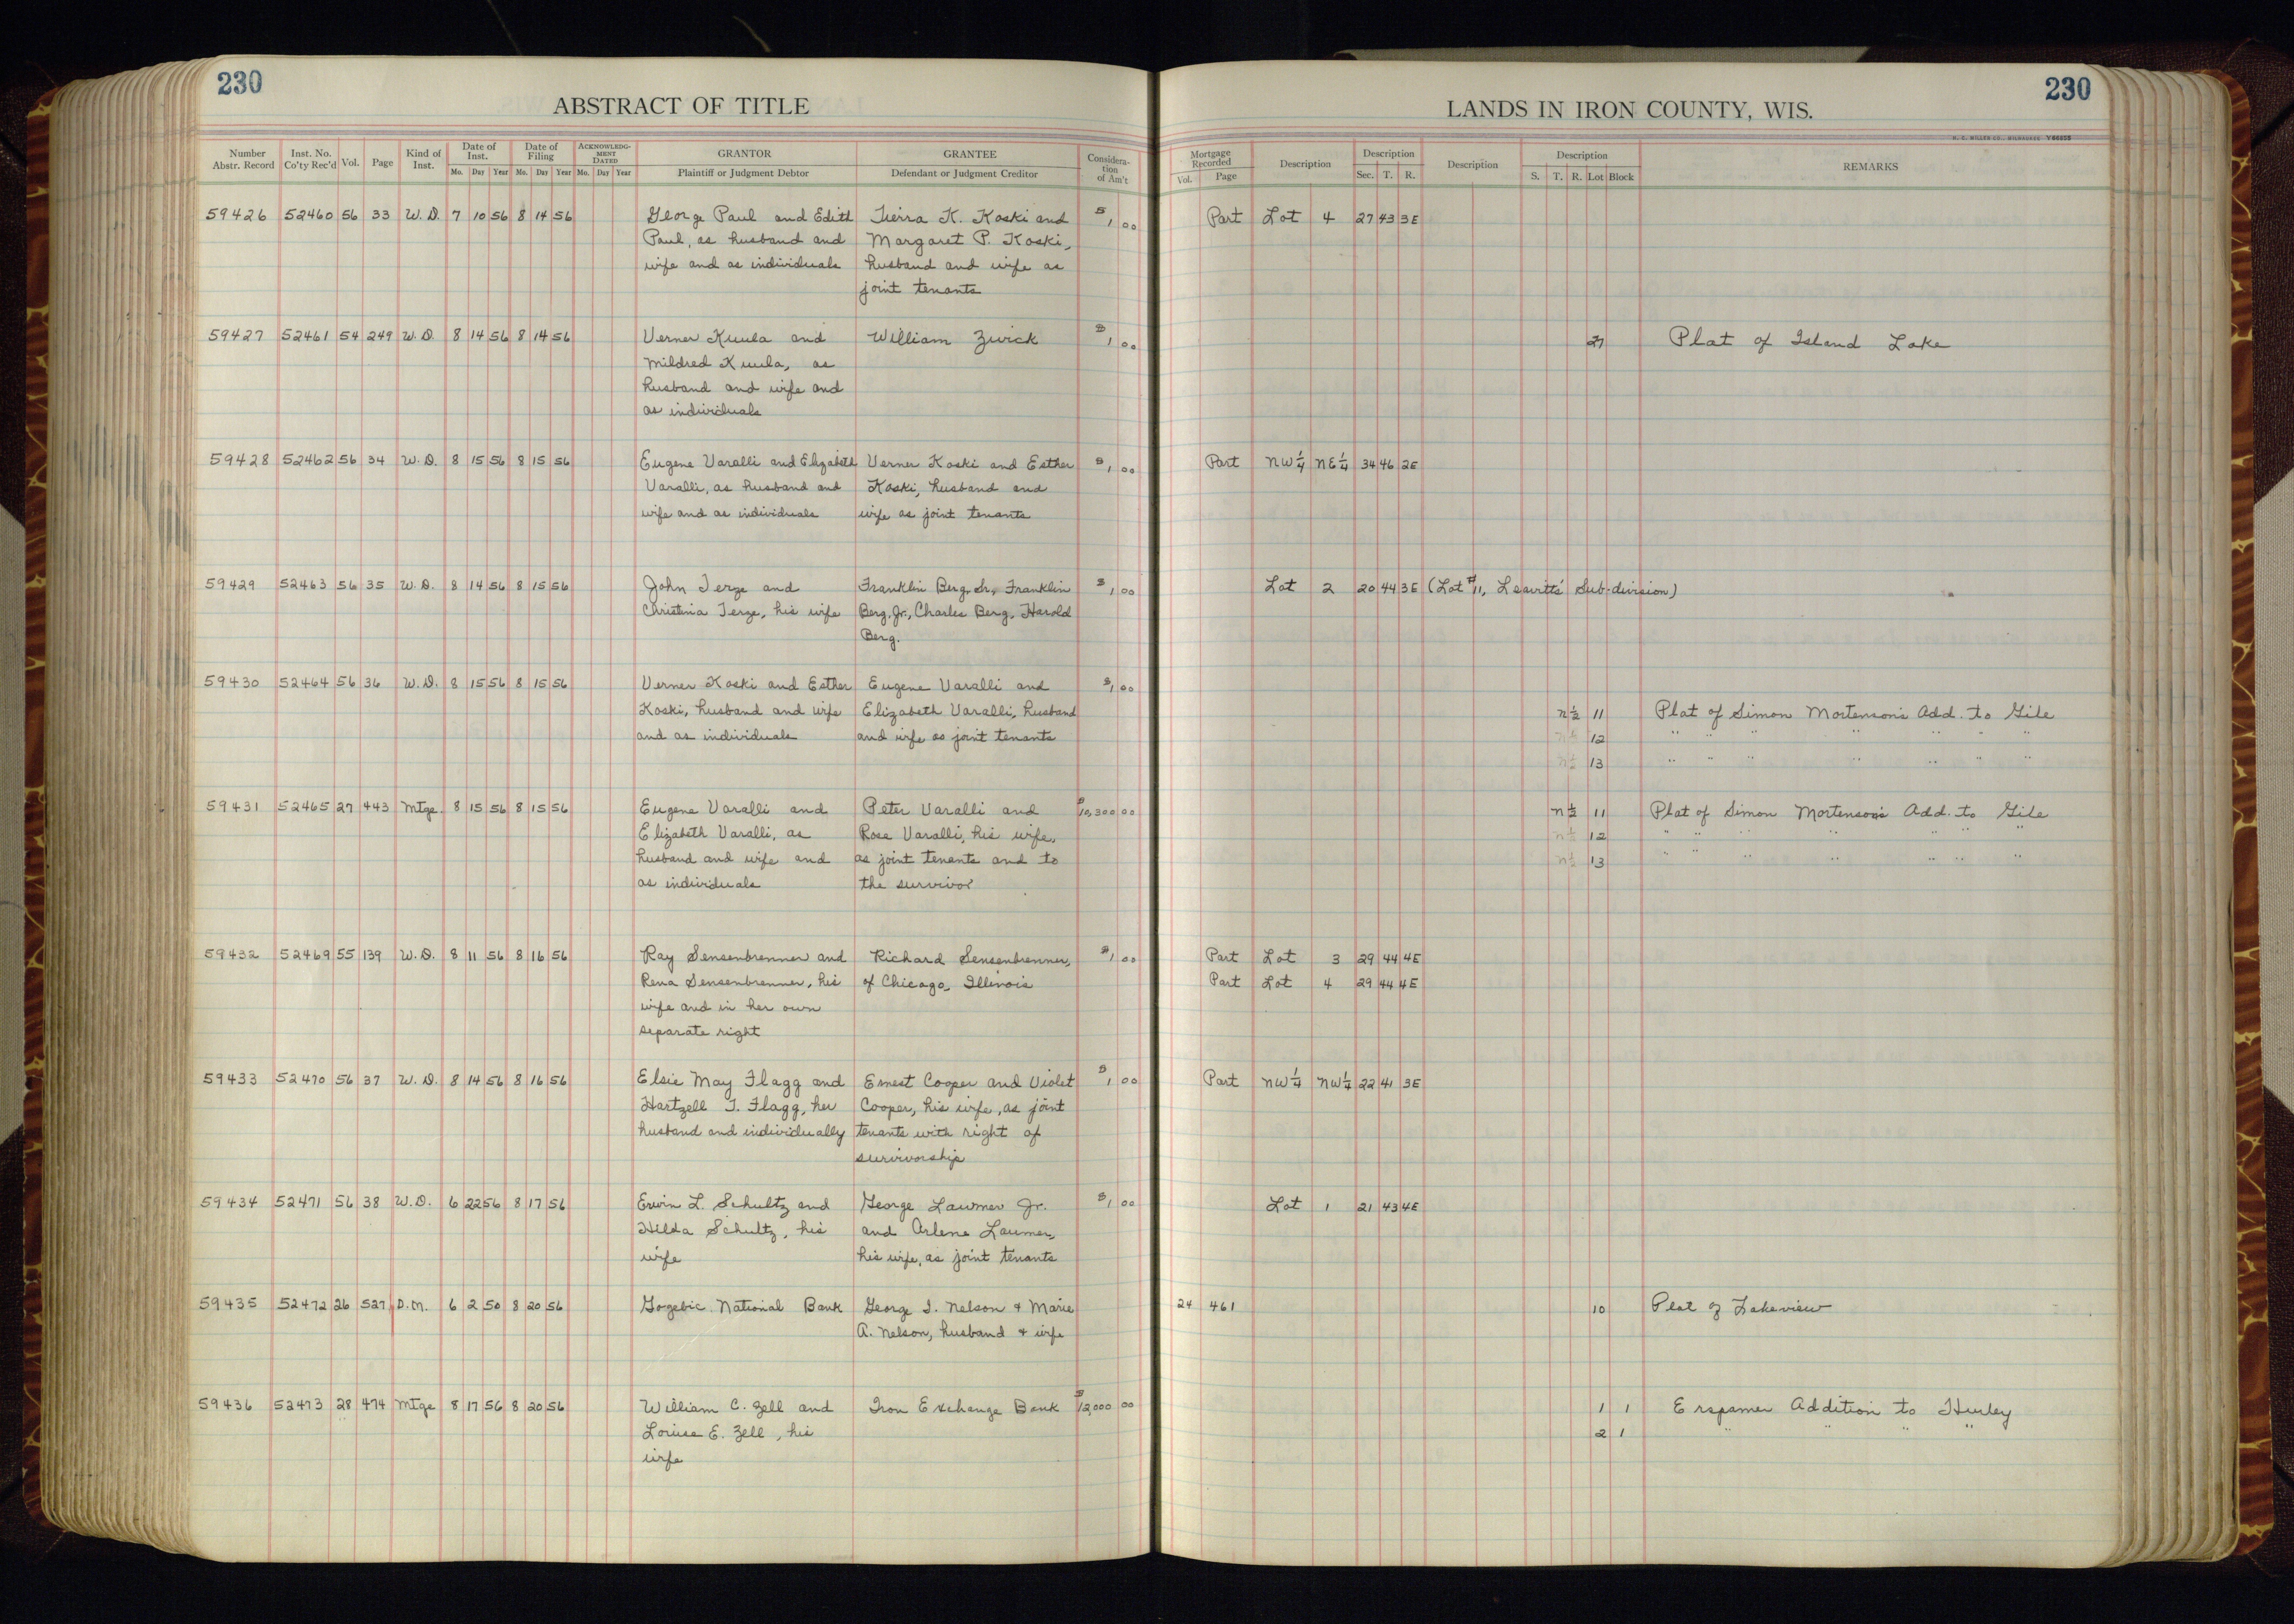 230
ABSTRACT OF TITLE
Number Abstr. Record | Inst. No. Co'ty Rec'd | Vol. | Page | Kind of Inst. | Date of Inst. Mo. Day Year | Date of Filing Mo. Day Year | ACKNOWLEDGMENT DATED Mo. Day Year | GRANTOR Plaintiff or Judgment Debtor | GRANTEE Defendant or Judgment Creditor | Consideration of Am't
230
LANDS IN IRON COUNTY, WIS.
H. C. MILLER CO., MILWAUKEE Y66855
Mortgage Recorded Vol. Page | Description | Description Sec. T. R. | Description | Description S. T. R. Lot Block | REMARKS
59426 52460 56 33 W.D. 7 10 56 8 14 56 George Paul and Edith | K. Koski and $1,00 Part Lot 4 27 43 3E
Paul, as husband and | Margaret P. Koski,
wife and as individuals | husband and wife as
joint tenants
59427 52461 54 249 W.D. 8 14 56 8 14 56 Verner Kuula and | William Zwick $1,00 27 Plat of Island Lake
Mildred Kuula, as
husband and wife and
as individuals
59428 52462 56 34 W.D. 8 15 56 8 15 56 Eugene Varalli and Elizabeth | Verner Koski and Esther $1,00 Part NW¼ NE¼ 34 46 2E
Varalli, as husband and | Koski, husband and
wife and as individuals | wife as joint tenants
59429 52463 56 35 W.D. 8 14 56 8 15 56 John Terze and | Franklin Berg, Sr., Franklin $1,00 Lot 2 20 44 3E (Lot #11, Leavitts' Sub-division)
Christina Terze, his wife | Berg, Jr., Charles Berg, Harold
Berg.
59430 52464 56 36 W.D. 8 15 56 8 15 56 Verner Koski and Esther | Eugene Varalli and $1,00
Koski, husband and wife | Elizabeth Varalli, husband N½ 11 Plat of Simon Mortenson's Add. to Gile
and as individuals | and wife as joint tenants N½ 12 " " " " " " "
N½ 13 " " " " " " "
59431 52465 27 443 Mtge. 8 15 56 8 15 56 Eugene Varalli and | Peter Varalli and $10,300 00 N½ 11 Plat of Simon Mortenson's Add. to Gile
Elizabeth Varalli, as | Rose Varalli, his wife, N½ 12 " " " " " " "
husband and wife and | as joint tenants and to N½ 13 " " " " " " "
as individuals | the survivor
59432 52469 55 139 W.D. 8 11 56 8 16 56 Ray Sensenbrenner and | Richard Sensenbrenner, $1,00 Part Lot 3 29 44 4E
Rena Sensenbrenner, his | of Chicago, Illinois Part Lot 4 29 44 4E
wife and in her own
separate right
59433 52470 56 37 W.D. 8 14 56 8 16 56 Elsie May Flagg and | Ernest Cooper and Violet $1,00 Part NW¼ NW¼ 22 41 3E
Hartzell T. Flagg, her | Cooper, his wife, as joint
husband and individually | tenants with right of
survivorship
59434 52471 56 38 W.D. 6 22 56 8 17 56 Erwin L. Schultz and | George Laumer Jr. $1,00 Lot 1 21 43 4E
Hilda Schultz, his | and Arlene Laumer,
wife | his wife, as joint tenants
59435 52472 26 527 D.M. 6 2 50 8 20 56 Gogebic National Bank | George I. Nelson + Marie 24 461 10 Plat of Lakeview
A. Nelson, husband + wife
59436 52473 28 474 Mtge 8 17 56 8 20 56 William C. Zell and | Iron Exchange Bank $12,000 00 1 1 Erspamer Addition to Hurley
Louise E. Zell, his 2 1 " " " "
wife